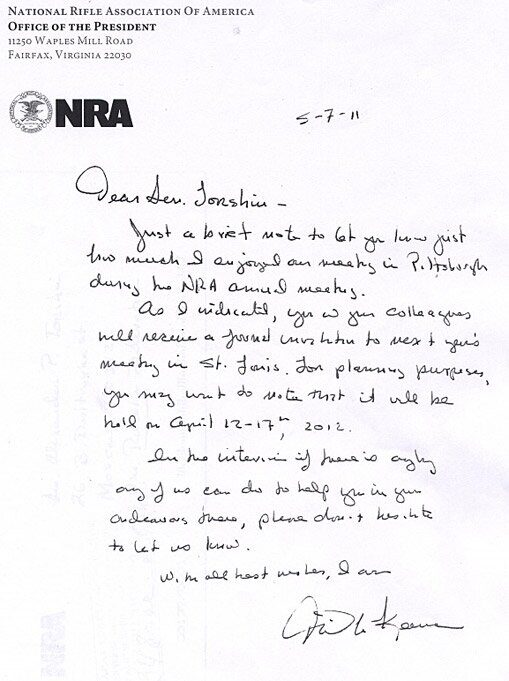 National Rifle Association Of America
Office of the President
11250 Waples Mill Road
Fairfax, Virginia 22030
NRA
5-7-11
Dear Sen. Torshin -
Just a brief note to let you know just
how much I enjoyed our meeting in Pittsburgh
during the NRA annual meeting.
As I indicated, you & your colleagues
will receive a formal invitation to next year's
meeting in St. Louis. For planning purposes,
you may want to note that it will be
held on April 12-17th, 2012.
In the interim if there is anything
any of us can do to help you in your
endeavors there, please don't hesitate
to let us know.
With all best wishes, I am